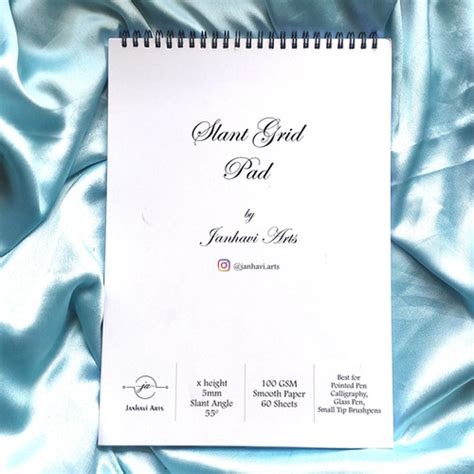 Slant Grid
Pad
by
Janhavi Arts
@janhavi.arts
ja
Janhavi Arts
x height
5mm
Slant Angle
55°
100 GSM
Smooth Paper
60 Sheets
Best for
Pointed Pen
Calligraphy,
Glass Pen,
Small Tip Brushpens